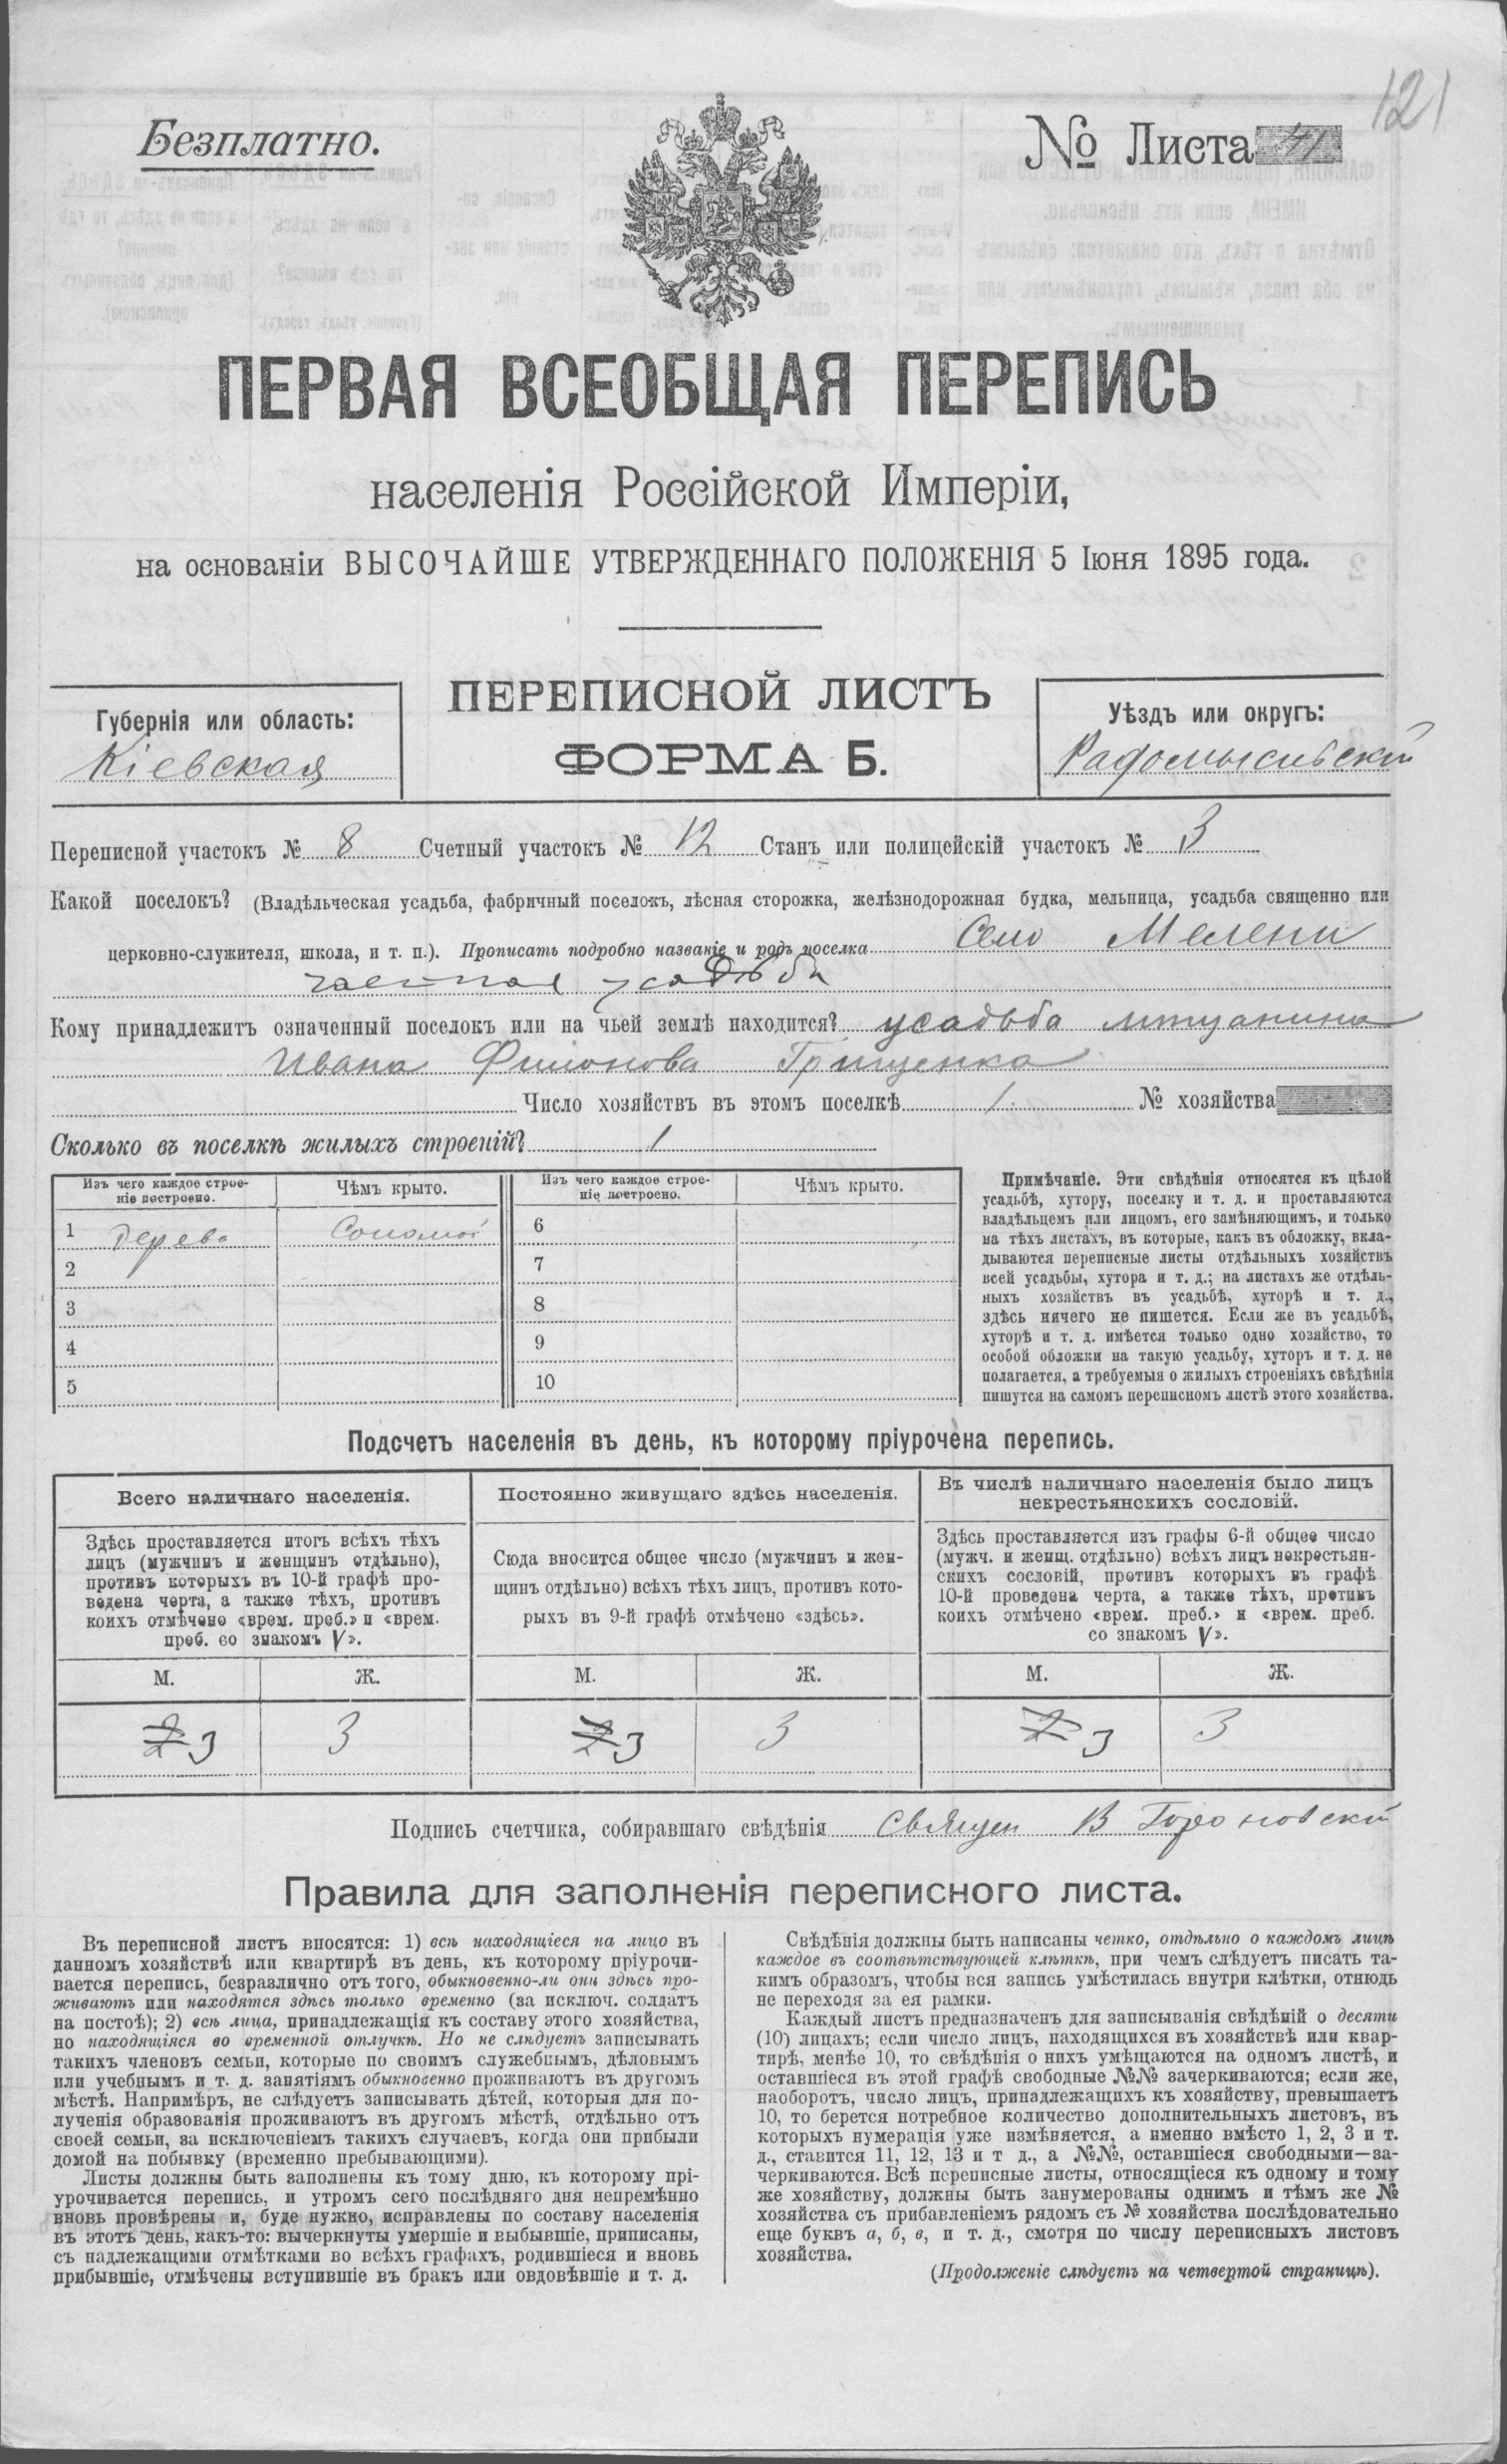 121
Безплатно.
№ Листа 41
ПЕРВАЯ ВСЕОБЩАЯ ПЕРЕПИСЬ
населенія Россійской Имперіи,
на основаніи ВЫСОЧАЙШЕ УТВЕРЖДЕННАГО ПОЛОЖЕНІЯ 5 Іюня 1895 года.
Губернія или область:
Кіевская
ПЕРЕПИСНОЙ ЛИСТЪ
ФОРМА Б.
Уѣздъ или округъ:
Радомысльскій
Переписной участокъ № 8 Счетный участокъ № 12 Станъ или полицейскій участокъ № 3
Какой поселокъ? (Владѣльческая усадьба, фабричный поселокъ, лѣсная сторожка, желѣзнодорожная будка, мельница, усадьба священно или
церковно-служителя, школа, и т. п.). Прописать подробно названіе и родъ поселка Село Мелени
частная усадьба
Кому принадлежитъ означенный поселокъ или на чьей землѣ находится? усадьба мѣщанина
Ивана Филонова Грищенка
Число хозяйствъ въ этомъ поселкѣ 1. № хозяйства
Сколько въ поселкѣ жилыхъ строеній? 1
Изъ чего каждое строе-
ніе построено.
Чѣмъ крыто.
Изъ чего каждое строе-
ніе построено.
Чѣмъ крыто.
1 Дерева Соломой 6
2 7
3 8
4 9
5 10
Примѣчаніе. Эти свѣдѣнія относятся къ цѣлой
усадьбѣ, хутору, поселку и т. д. и проставляются
владѣльцемъ или лицомъ, его замѣняющимъ, и только
на тѣхъ листахъ, въ которые, какъ въ обложку, вкла-
дываются переписные листы отдѣльныхъ хозяйствъ
всей усадьбы, хутора и т. д.; на листахъ же отдѣль-
ныхъ хозяйствъ въ усадьбѣ, хуторѣ и т. д.,
здѣсь ничего не пишется. Если же въ усадьбѣ,
хуторѣ и т. д. имѣется только одно хозяйство, то
особой обложки на такую усадьбу, хуторъ и т. д. не
полагается, а требуемыя о жилыхъ строеніяхъ свѣдѣнія
пишутся на самомъ переписномъ листѣ этого хозяйства.
Подсчетъ населенія въ день, къ которому пріурочена перепись.
Всего наличнаго населенія.
Здѣсь проставляется итогъ всѣхъ тѣхъ
лицъ (мужчинъ и женщинъ отдѣльно),
противъ которыхъ въ 10-й графѣ про-
ведена черта, а также тѣхъ, противъ
коихъ отмѣчено «врем. преб.» и «врем.
преб. со знакомъ V».
Постоянно живущаго здѣсь населенія.
Сюда вносится общее число (мужчинъ и жен-
щинъ отдѣльно) всѣхъ тѣхъ лицъ, противъ кото-
рыхъ въ 9-й графѣ отмѣчено «здѣсь».
Въ числѣ наличнаго населенія было лицъ
некрестьянскихъ сословій.
Здѣсь проставляется изъ графы 6-й общее число
(мужч. и женщ. отдѣльно) всѣхъ лицъ некрестьян-
скихъ сословій, противъ которыхъ въ графѣ
10-й проведена черта, а также тѣхъ, противъ
коихъ отмѣчено «врем. преб.» и «врем. преб.
со знакомъ V».
М. Ж. М. Ж. М. Ж.
2 3 3 2 3 3 2 3 3
Подпись счетчика, собиравшаго свѣдѣнія Священ В
Правила для заполненія переписного листа.
Въ переписной листъ вносятся: 1) всѣ находящіеся на лицо въ
данномъ хозяйствѣ или квартирѣ въ день, къ которому пріурочи-
вается перепись, безразлично отъ того, обыкновенно-ли они здѣсь про-
живаютъ или находятся здѣсь только временно (за исключ. солдатъ
на постоѣ); 2) всѣ лица, принадлежащія къ составу этого хозяйства,
но находящіяся во временной отлучкѣ. Но не слѣдуетъ записывать
такихъ членовъ семьи, которые по своимъ служебнымъ, дѣловымъ
или учебнымъ и т. д. занятіямъ обыкновенно проживаютъ въ другомъ
мѣстѣ. Напримѣръ, не слѣдуетъ записывать дѣтей, которыя для по-
лученія образованія проживаютъ въ другомъ мѣстѣ, отдѣльно отъ
своей семьи, за исключеніемъ такихъ случаевъ, когда они прибыли
домой на побывку (временно пребывающими).
Листы должны быть заполнены къ тому дню, къ которому прі-
урочивается перепись, и утромъ сего послѣдняго дня непремѣнно
вновь провѣрены и, буде нужно, исправлены по составу населенія
въ этотъ день, какъ-то: вычеркнуты умершіе и выбывшіе, приписаны,
съ надлежащими отмѣтками во всѣхъ графахъ, родившіеся и вновь
прибывшіе, отмѣчены вступившіе въ бракъ или овдовѣвшіе и т. д.
Свѣдѣнія должны быть написаны четко, отдѣльно о каждомъ лицѣ
каждое въ соотвѣтствующей клѣткѣ, при чемъ слѣдуетъ писать та-
кимъ образомъ, чтобы вся запись умѣстилась внутри клѣтки, отнюдь
не переходя за ея рамки.
Каждый листъ предназначенъ для записыванія свѣдѣній о десяти
(10) лицахъ; если число лицъ, находящихся въ хозяйствѣ или квар-
тирѣ, менѣе 10, то свѣдѣнія о нихъ умѣщаются на одномъ листѣ, и
оставшіеся въ этой графѣ свободные №№ зачеркиваются; если же,
наоборотъ, число лицъ, принадлежащихъ къ хозяйству, превышаетъ
10, то берется потребное количество дополнительныхъ листовъ, въ
которыхъ нумерація уже измѣняется, а именно вмѣсто 1, 2, 3 и т.
д., ставится 11, 12, 13 и т д., а №№, оставшіеся свободными—за-
черкиваются. Всѣ переписные листы, относящіеся къ одному и тому
же хозяйству, должны быть занумерованы однимъ и тѣмъ же №
хозяйства съ прибавленіемъ рядомъ съ № хозяйства послѣдовательно
еще буквъ а, б, в, и т. д., смотря по числу переписныхъ листовъ
хозяйства.
(Продолженіе слѣдуетъ на четвертой страницѣ).